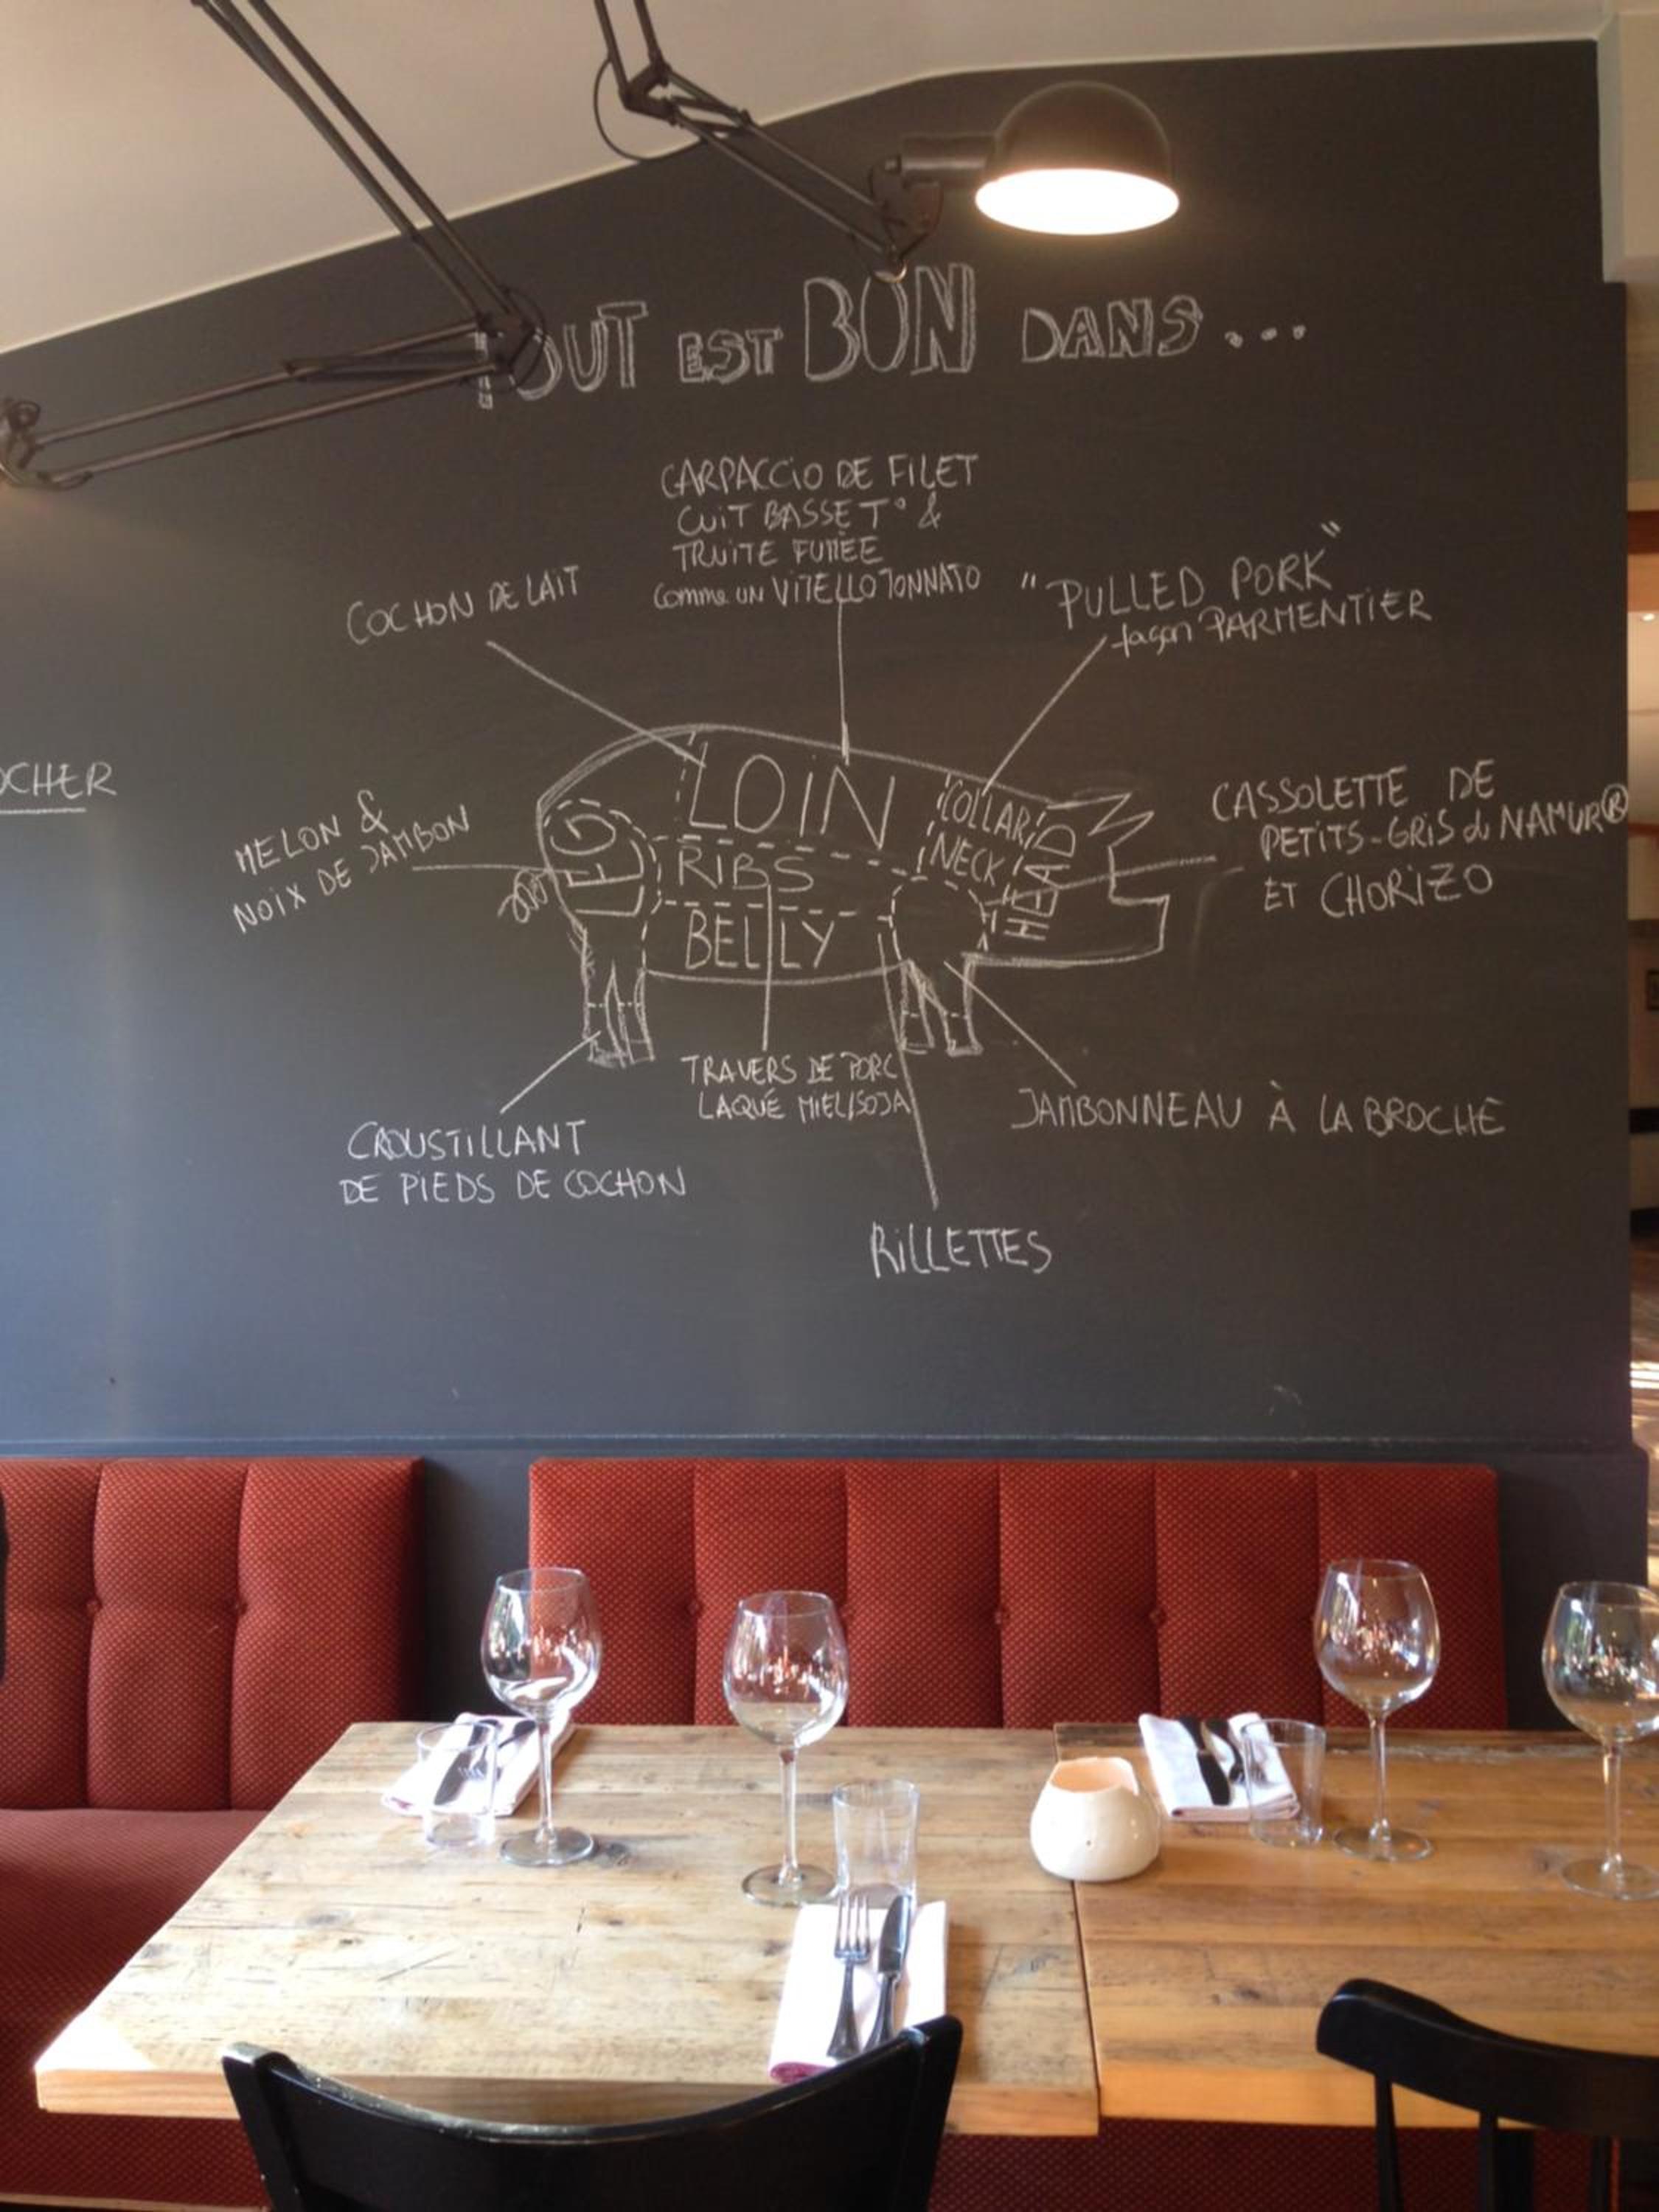 TOUT EST BON DANS...
CARPACCIO DE FILET
CUIT BASSE T° &
TRUITE FUMÉE
comme UN VITELLO TONNATO
COCHON DE LAIT
"PULLED PORK"
façon PARMENTIER
MELON &
NOIX DE JAMBON
LOIN
COLLAR
NECK
HEAD
LEG
RIBS
BELLY
CASSOLETTE DE
PETITS-GRIS de NAMUR®
ET CHORIZO
TRAVERS DE PORC
LAQUÉ MIEL/SOJA
JAMBONNEAU À LA BROCHE
CROUSTILLANT
DE PIEDS DE COCHON
RILLETTES